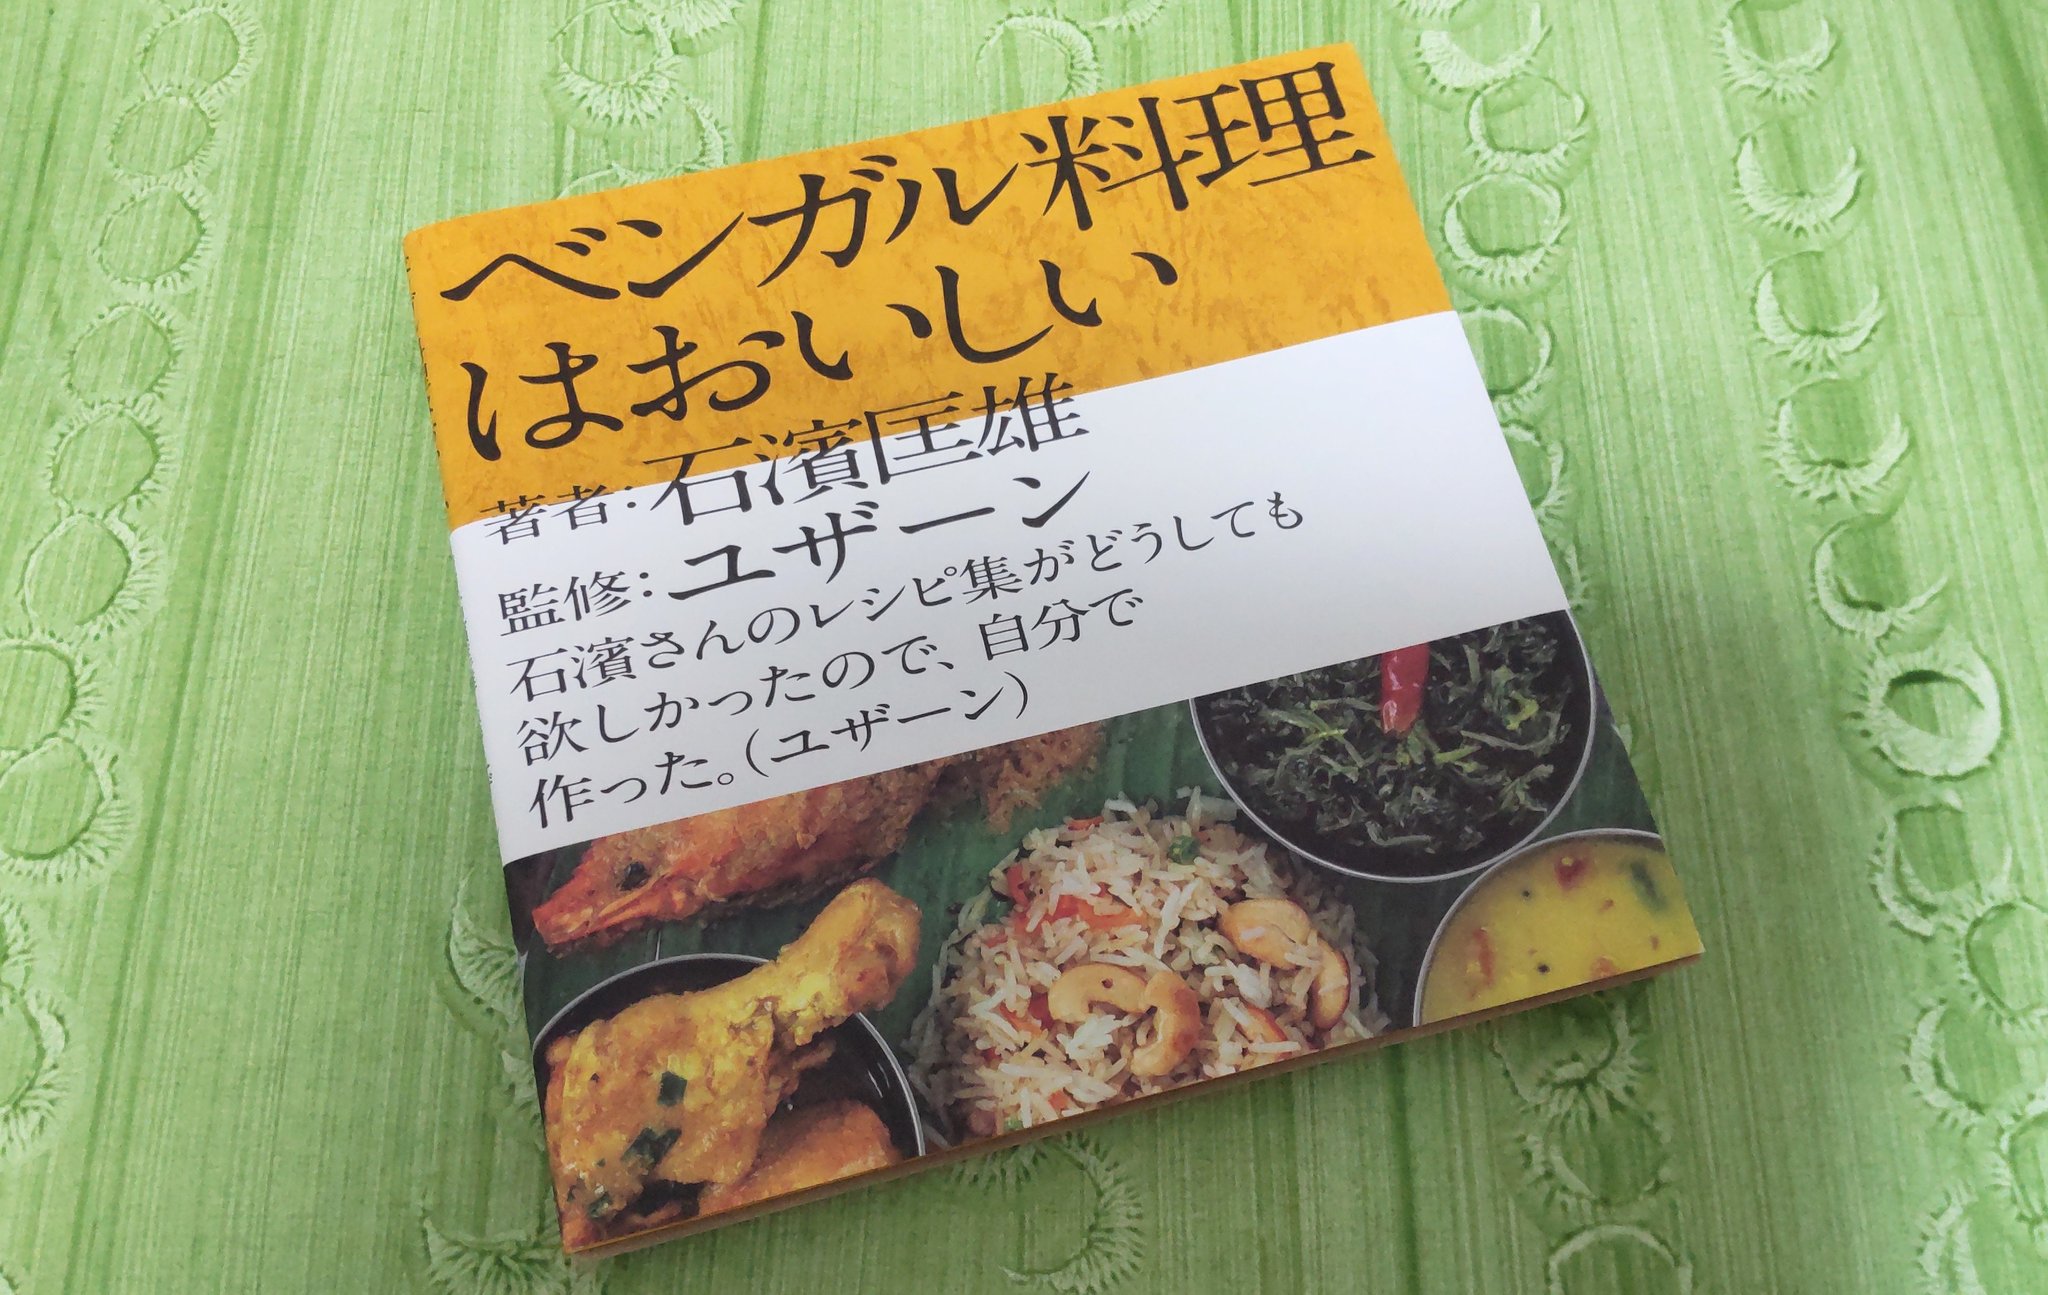 ベンガル料理
はおいしい
著者:石濱匡雄
監修:ユザーン
石濱さんのレシピ集がどうしても
欲しかったので、自分で
作った。(ユザーン)